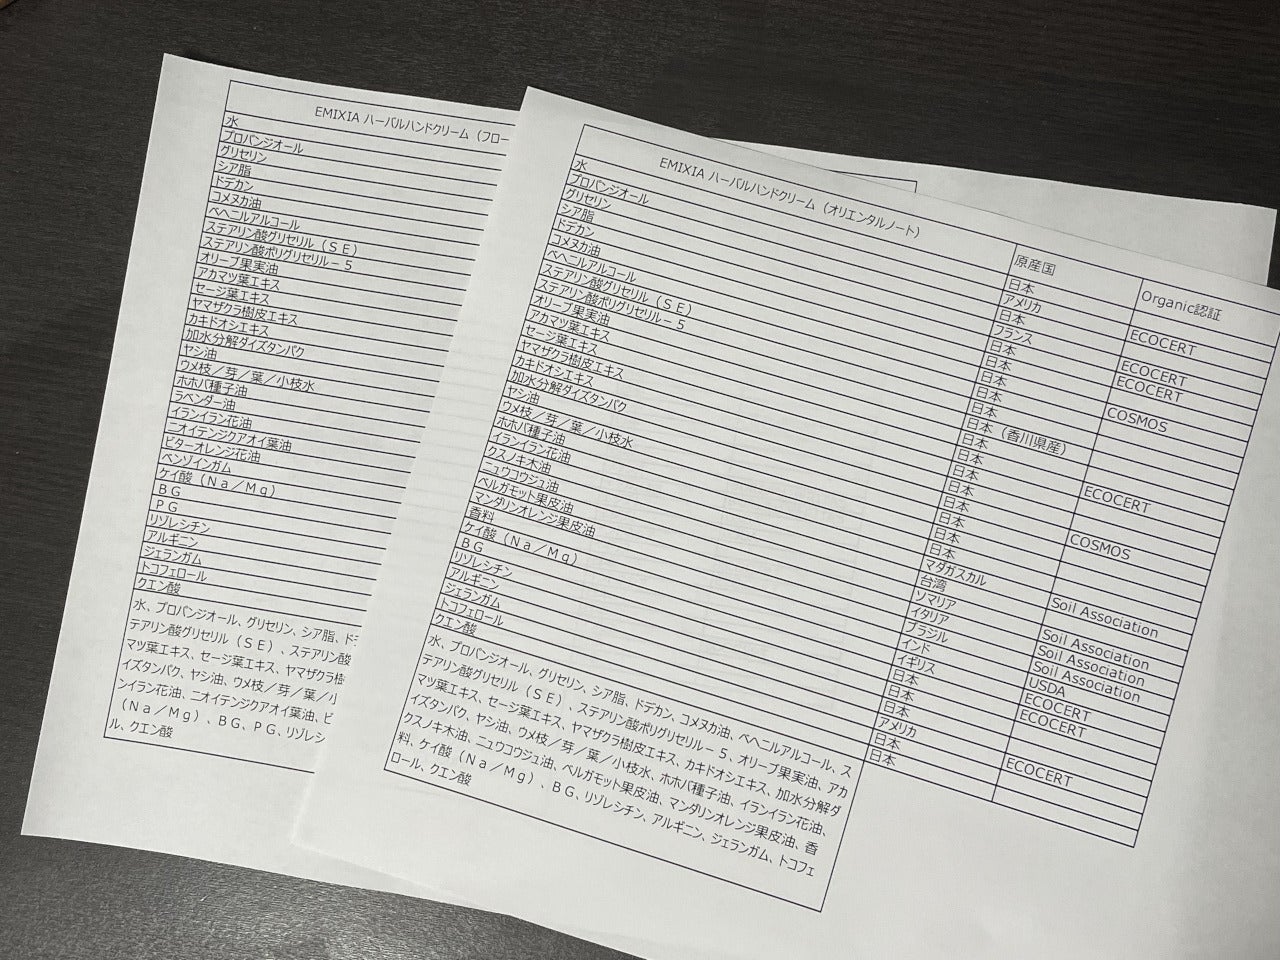 EMIXIA ハーバルハンドクリーム（フロー
水
プロパンジオール
グリセリン
シア脂
ドデカン
コメヌカ油
ベヘニルアルコール
ステアリン酸グリセリル（ＳＥ）
ステアリン酸ポリグリセリル－５
オリーブ果実油
アカマツ葉エキス
セージ葉エキス
ヤマザクラ樹皮エキス
カキドオシエキス
加水分解ダイズタンパク
ヤシ油
ウメ枝／芽／葉／小枝水
ホホバ種子油
ラベンダー油
イランイラン花油
ニオイテンジクアオイ葉油
ビターオレンジ花油
ベンゾインガム
ケイ酸（Ｎａ／Ｍｇ）
ＢＧ
ＰＧ
リゾレシチン
アルギニン
ジェランガム
トコフェロール
クエン酸
水、プロパンジオール、グリセリン、シア脂、ドデ
テアリン酸グリセリル（ＳＥ）、ステアリン酸
マツ葉エキス、セージ葉エキス、ヤマザクラ樹
イズタンパク、ヤシ油、ウメ枝／芽／葉／小
ンイラン花油、ニオイテンジクアオイ葉油、ビ
（Ｎａ／Ｍｇ）、ＢＧ、ＰＧ、リゾレシ
ル、クエン酸
EMIXIA ハーバルハンドクリーム（オリエンタルノート）
原産国
Organic認証
水
プロパンジオール
グリセリン
シア脂
ドデカン
コメヌカ油
ベヘニルアルコール
ステアリン酸グリセリル（ＳＥ）
ステアリン酸ポリグリセリル－５
オリーブ果実油
アカマツ葉エキス
セージ葉エキス
ヤマザクラ樹皮エキス
カキドオシエキス
加水分解ダイズタンパク
ヤシ油
ウメ枝／芽／葉／小枝水
ホホバ種子油
イランイラン花油
クスノキ木油
ニュウコウジュ油
ベルガモット果皮油
マンダリンオレンジ果皮油
香料
ケイ酸（Ｎａ／Ｍｇ）
ＢＧ
リゾレシチン
アルギニン
ジェランガム
トコフェロール
クエン酸
日本
アメリカ
日本
フランス
日本
日本
日本
日本
日本
日本（香川県産）
日本
日本
日本
日本
日本
日本
日本
日本
マダガスカル
台湾
ソマリア
イタリア
ブラジル
インド
イギリス
日本
日本
日本
アメリカ
日本
日本
ECOCERT
ECOCERT
ECOCERT
COSMOS
ECOCERT
COSMOS
Soil Association
Soil Association
Soil Association
Soil Association
USDA
ECOCERT
ECOCERT
ECOCERT
水、プロパンジオール、グリセリン、シア脂、ドデカン、コメヌカ油、ベヘニルアルコール、ス
テアリン酸グリセリル（ＳＥ）、ステアリン酸ポリグリセリル－５、オリーブ果実油、アカ
マツ葉エキス、セージ葉エキス、ヤマザクラ樹皮エキス、カキドオシエキス、加水分解ダ
イズタンパク、ヤシ油、ウメ枝／芽／葉／小枝水、ホホバ種子油、イランイラン花油、
クスノキ木油、ニュウコウジュ油、ベルガモット果皮油、マンダリンオレンジ果皮油、香
料、ケイ酸（Ｎａ／Ｍｇ）、ＢＧ、リゾレシチン、アルギニン、ジェランガム、トコフェ
ロール、クエン酸